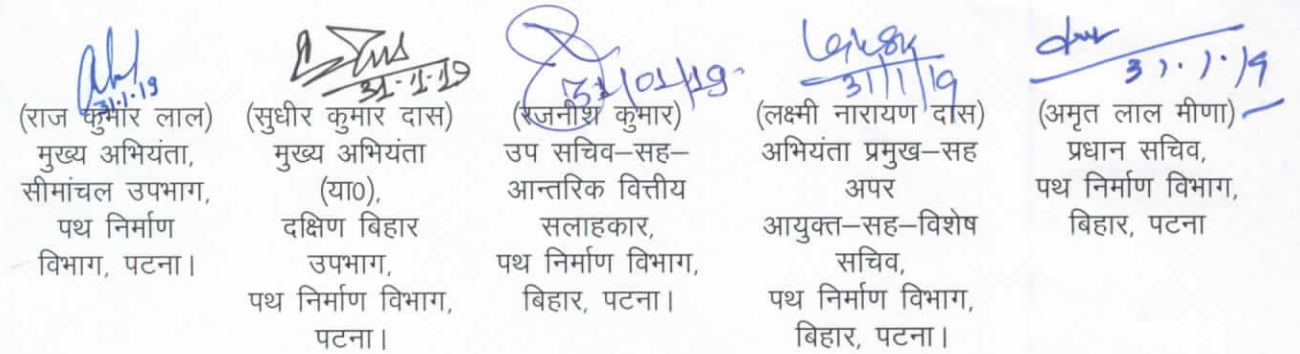 31.1.19
(राज कुमार लाल)
मुख्य अभियंता,
सीमांचल उपभाग,
पथ निर्माण
विभाग, पटना।
31.1.19
(सुधीर कुमार दास)
मुख्य अभियंता
(या०),
दक्षिण बिहार
उपभाग,
पथ निर्माण विभाग,
पटना।
31/01/19
(रजनीश कुमार)
उप सचिव–सह–
आन्तरिक वित्तीय
सलाहकार,
पथ निर्माण विभाग,
बिहार, पटना।
31/1/19
(लक्ष्मी नारायण दास)
अभियंता प्रमुख–सह
अपर
आयुक्त–सह–विशेष
सचिव,
पथ निर्माण विभाग,
बिहार, पटना।
31.1.19
(अमृत लाल मीणा)
प्रधान सचिव,
पथ निर्माण विभाग,
बिहार, पटना